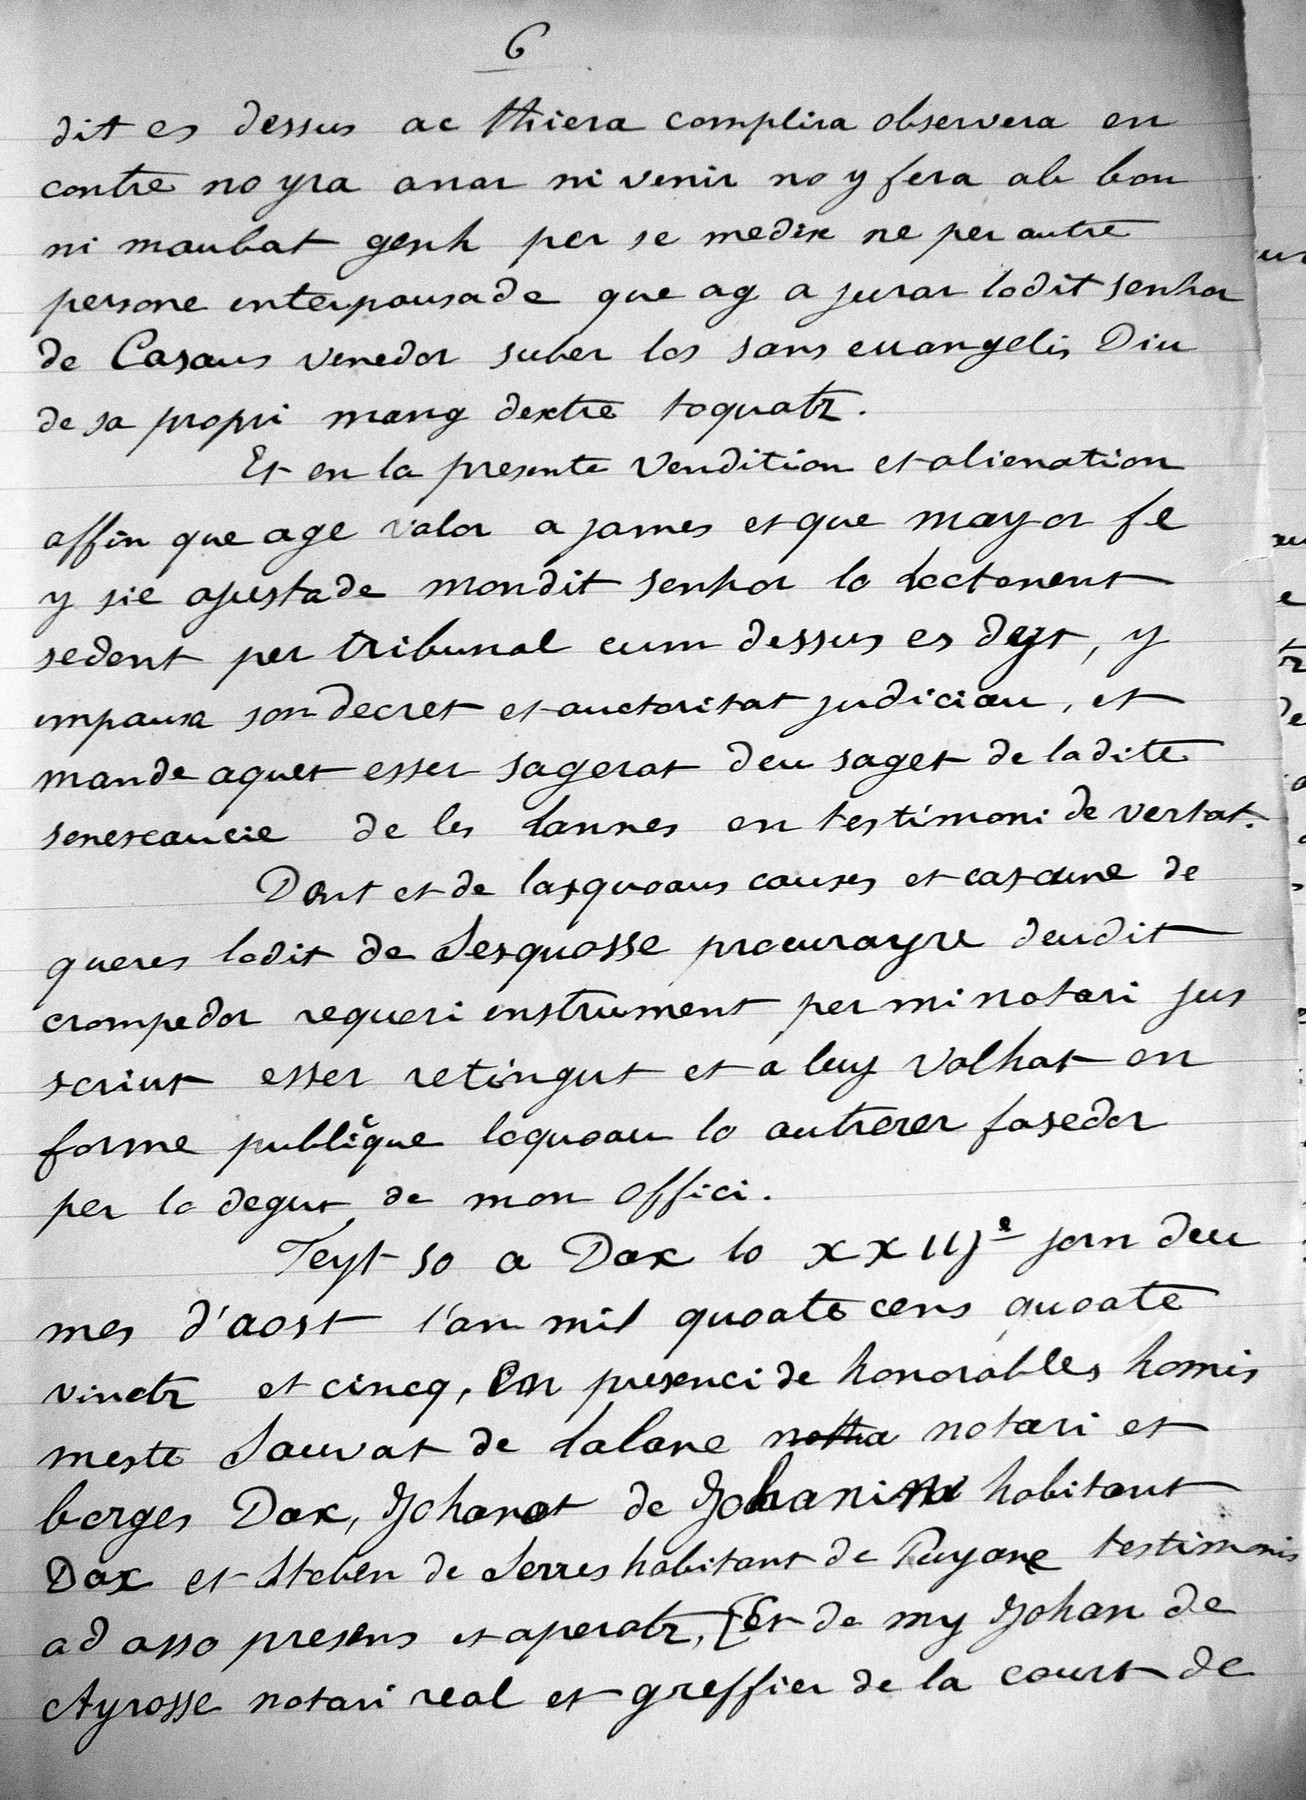 6
dit es dessus ac thiera complira observera en
contre no yra anar ni venir no y fera ab bon
ni maubat genh per se medix ne per autre
persone interpausade que ag a jurar lodit senhor
de Casaus venedor suber los sans euangelis Diu
de sa propri mang dextre toquatz.
Et en la presente vendition et alienation
affin que age valor a james et que mayor fe
y sie ajustade mondit senhor lo loctenent
sedent per tribunal cum dessus es deyt, y
impausa son decret et auctoritat judiciau, et
mande aquet esser sagerat deu saget de ladite
senescaucie de les Lannes en testimoni de vertat.
Dont et de lasquoaus causes et cascune de
queres lodit de Sesquosse procurayre deudit
crompedor requeri instrument per mi notari jus
scriut esser retingut et a luy valhat en
forme publique loquoau lo autrerer fasedor
per lo degut de mon offici.
Feyt so a Dax lo xxiije jorn deu
mes d'aost l'an mil quoate cens quoate
vinctz et cincq, en presenci de honorables homis
meste Sauvat de Lalane notari et
borges Dax, Johanot de habitant
Dax et Steben de Serres habitant de Puyane testimonis
ad asso presens et aperatz, [Et de my Johan de
Ayrosse notari real et greffier de la court de